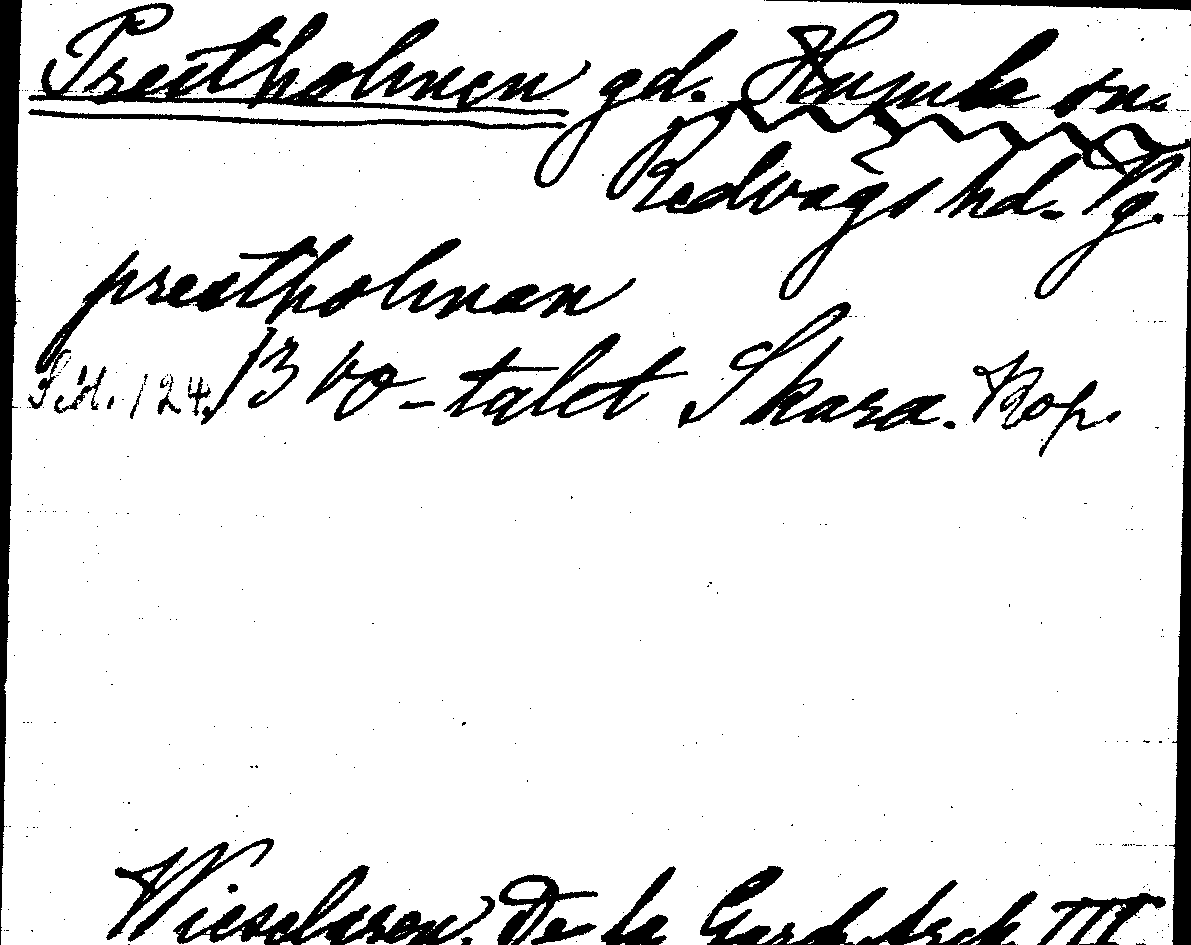 Prestholmen gd. Humla sn.
Redvägs hd. Vg.
prestholman
S. 124. 1300-talet Skara. Kop.
Wieselgren. De la Gard. Arch. III.